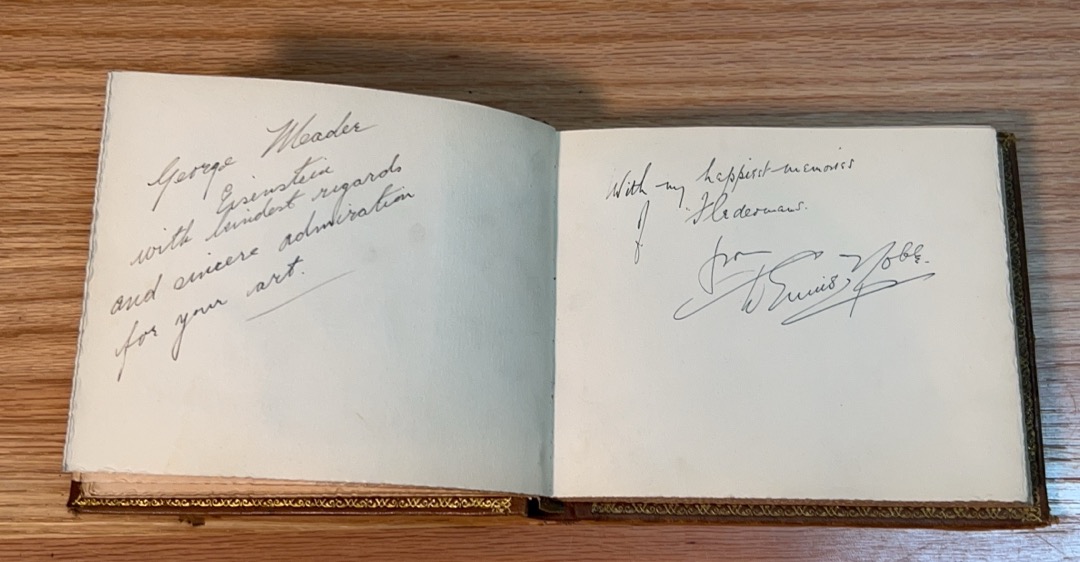 George Meader
Eisenstein
with kindest regards
and sincere admiration
for your art.
With my happiest memories
of Fledermaus.
from
Dennis Noble.